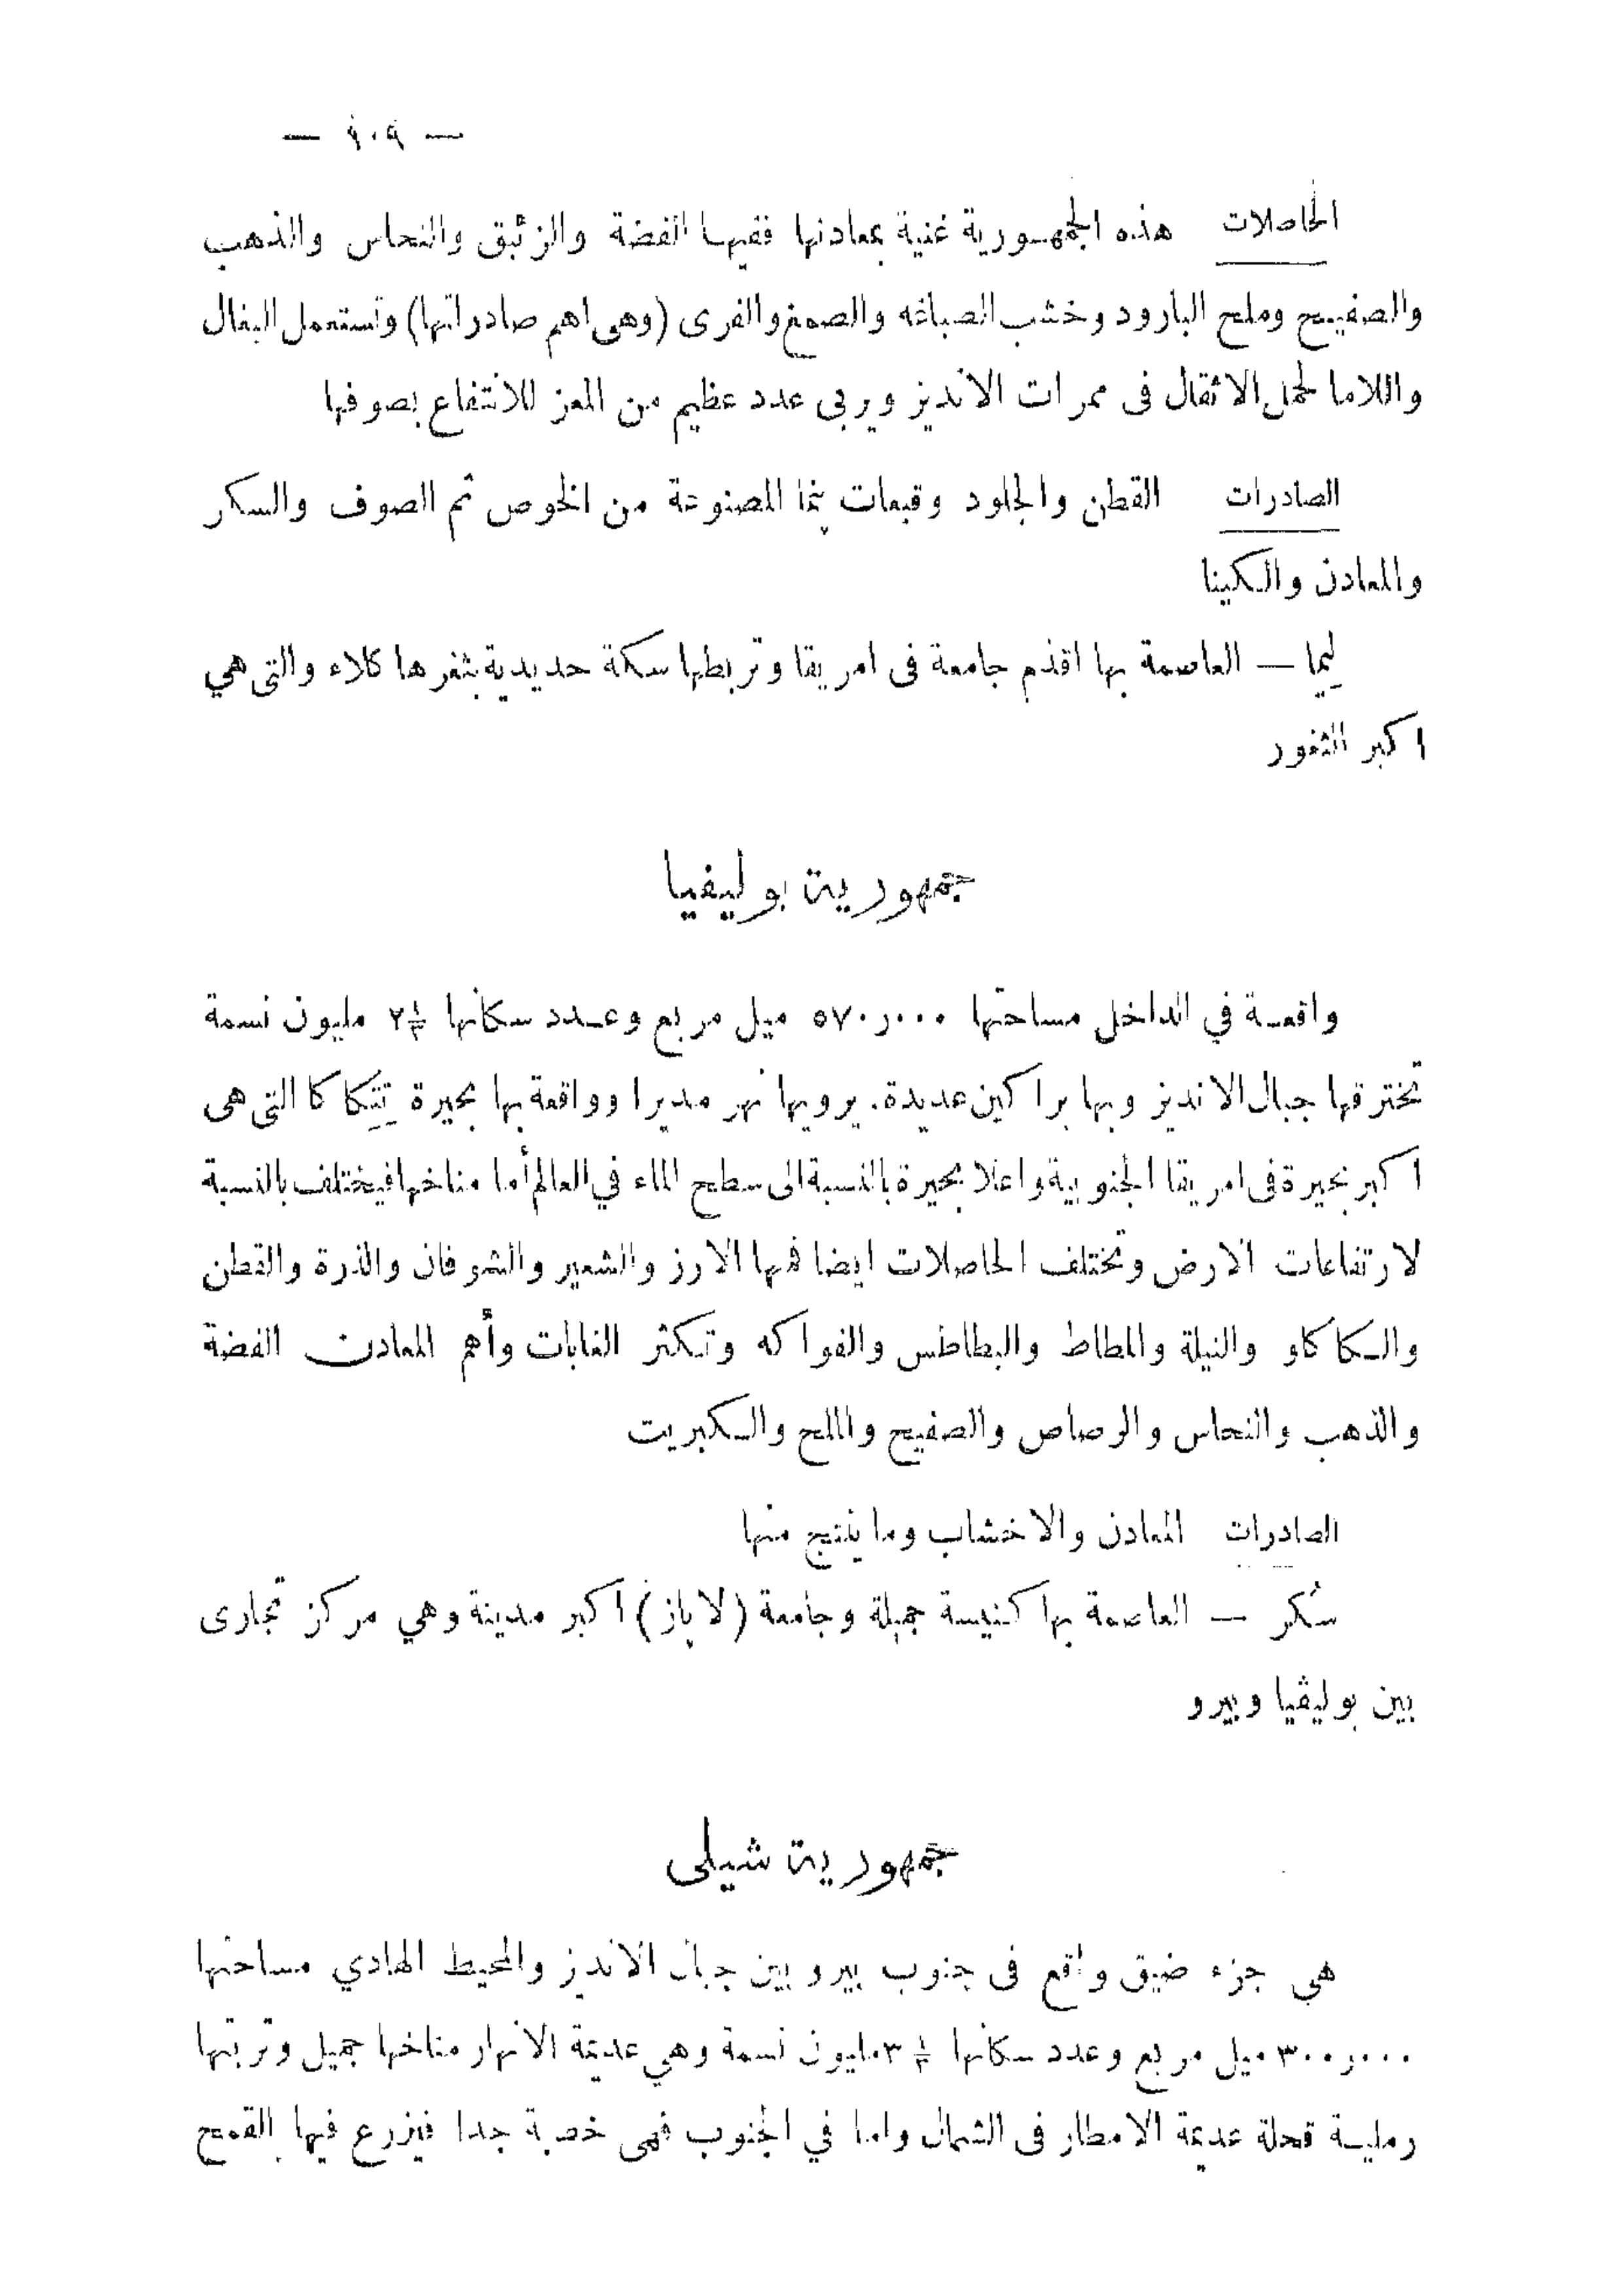 — ٩٠٩ —
الحاصلات هذه الجمهورية غنية بمعادنها ففيها الفضة والزئبق والنحاس والذهب
والصفيح وملح البارود وخشب الصباغه والصمغ والفرى (وهى اهم صادراتها) وتستعمل البغال
واللاما لحمل الاثقال فى ممرات الانديز ويربى عدد عظيم من المعز للانتفاع بصوفها
الصادرات القطن والجلود وقبعات بنما المصنوعة من الخوص ثم الصوف والسكر
والمعادن والكينا
ليما — العاصمة بها اقدم جامعة فى امريقا وتربطها سكة حديدية بثغرها كلاء والتى هي
اكبر الثغور
جمهورية بوليفيا
واقعة في الداخل مساحتها ٥٧٠ر٠٠٠ ميل مربع وعدد سكانها ٢½ مليون نسمة
تخترقها جبال الانديز وبها براكين عديدة. يرويها نهر مديرا وواقعة بها بحيرة تِتِكاكا التى هى
اكبر بحيرة فى امريقا الجنوبية واعلا بحيرة بالنسبة الى سطح الماء في العالم أما مناخها فيختلف بالنسبة
لارتفاعات الارض وتختلف الحاصلات ايضا فمنها الارز والشعير والشوفان والذرة والقطن
والكاكاو والنيلة والمطاط والبطاطس والفواكه وتكثر الغابات وأهم المعادن الفضة
والذهب والنحاس والرصاص والصفيح والملح والكبريت
الصادرات المعادن والاخشاب وما ينتج منها
سُكر — العاصمة بها كنيسة جميلة وجامعة (لا باز) اكبر مدينة وهي مركز تجارى
بين بوليڤيا وبيرو
جمهورية شيلى
هي جزء ضيق واقع فى جنوب بيرو بين جبال الانديز والمحيط الهادي مساحتها
٣٠٠ر٠٠٠ ميل مربع وعدد سكانها ٣½ مليون نسمة وهي عديمة الانهار مناخها جميل وتربتها
رملية قحلة عديمة الامطار فى الشمال واما في الجنوب فهى خصبة جدا فيزرع فيها القمح